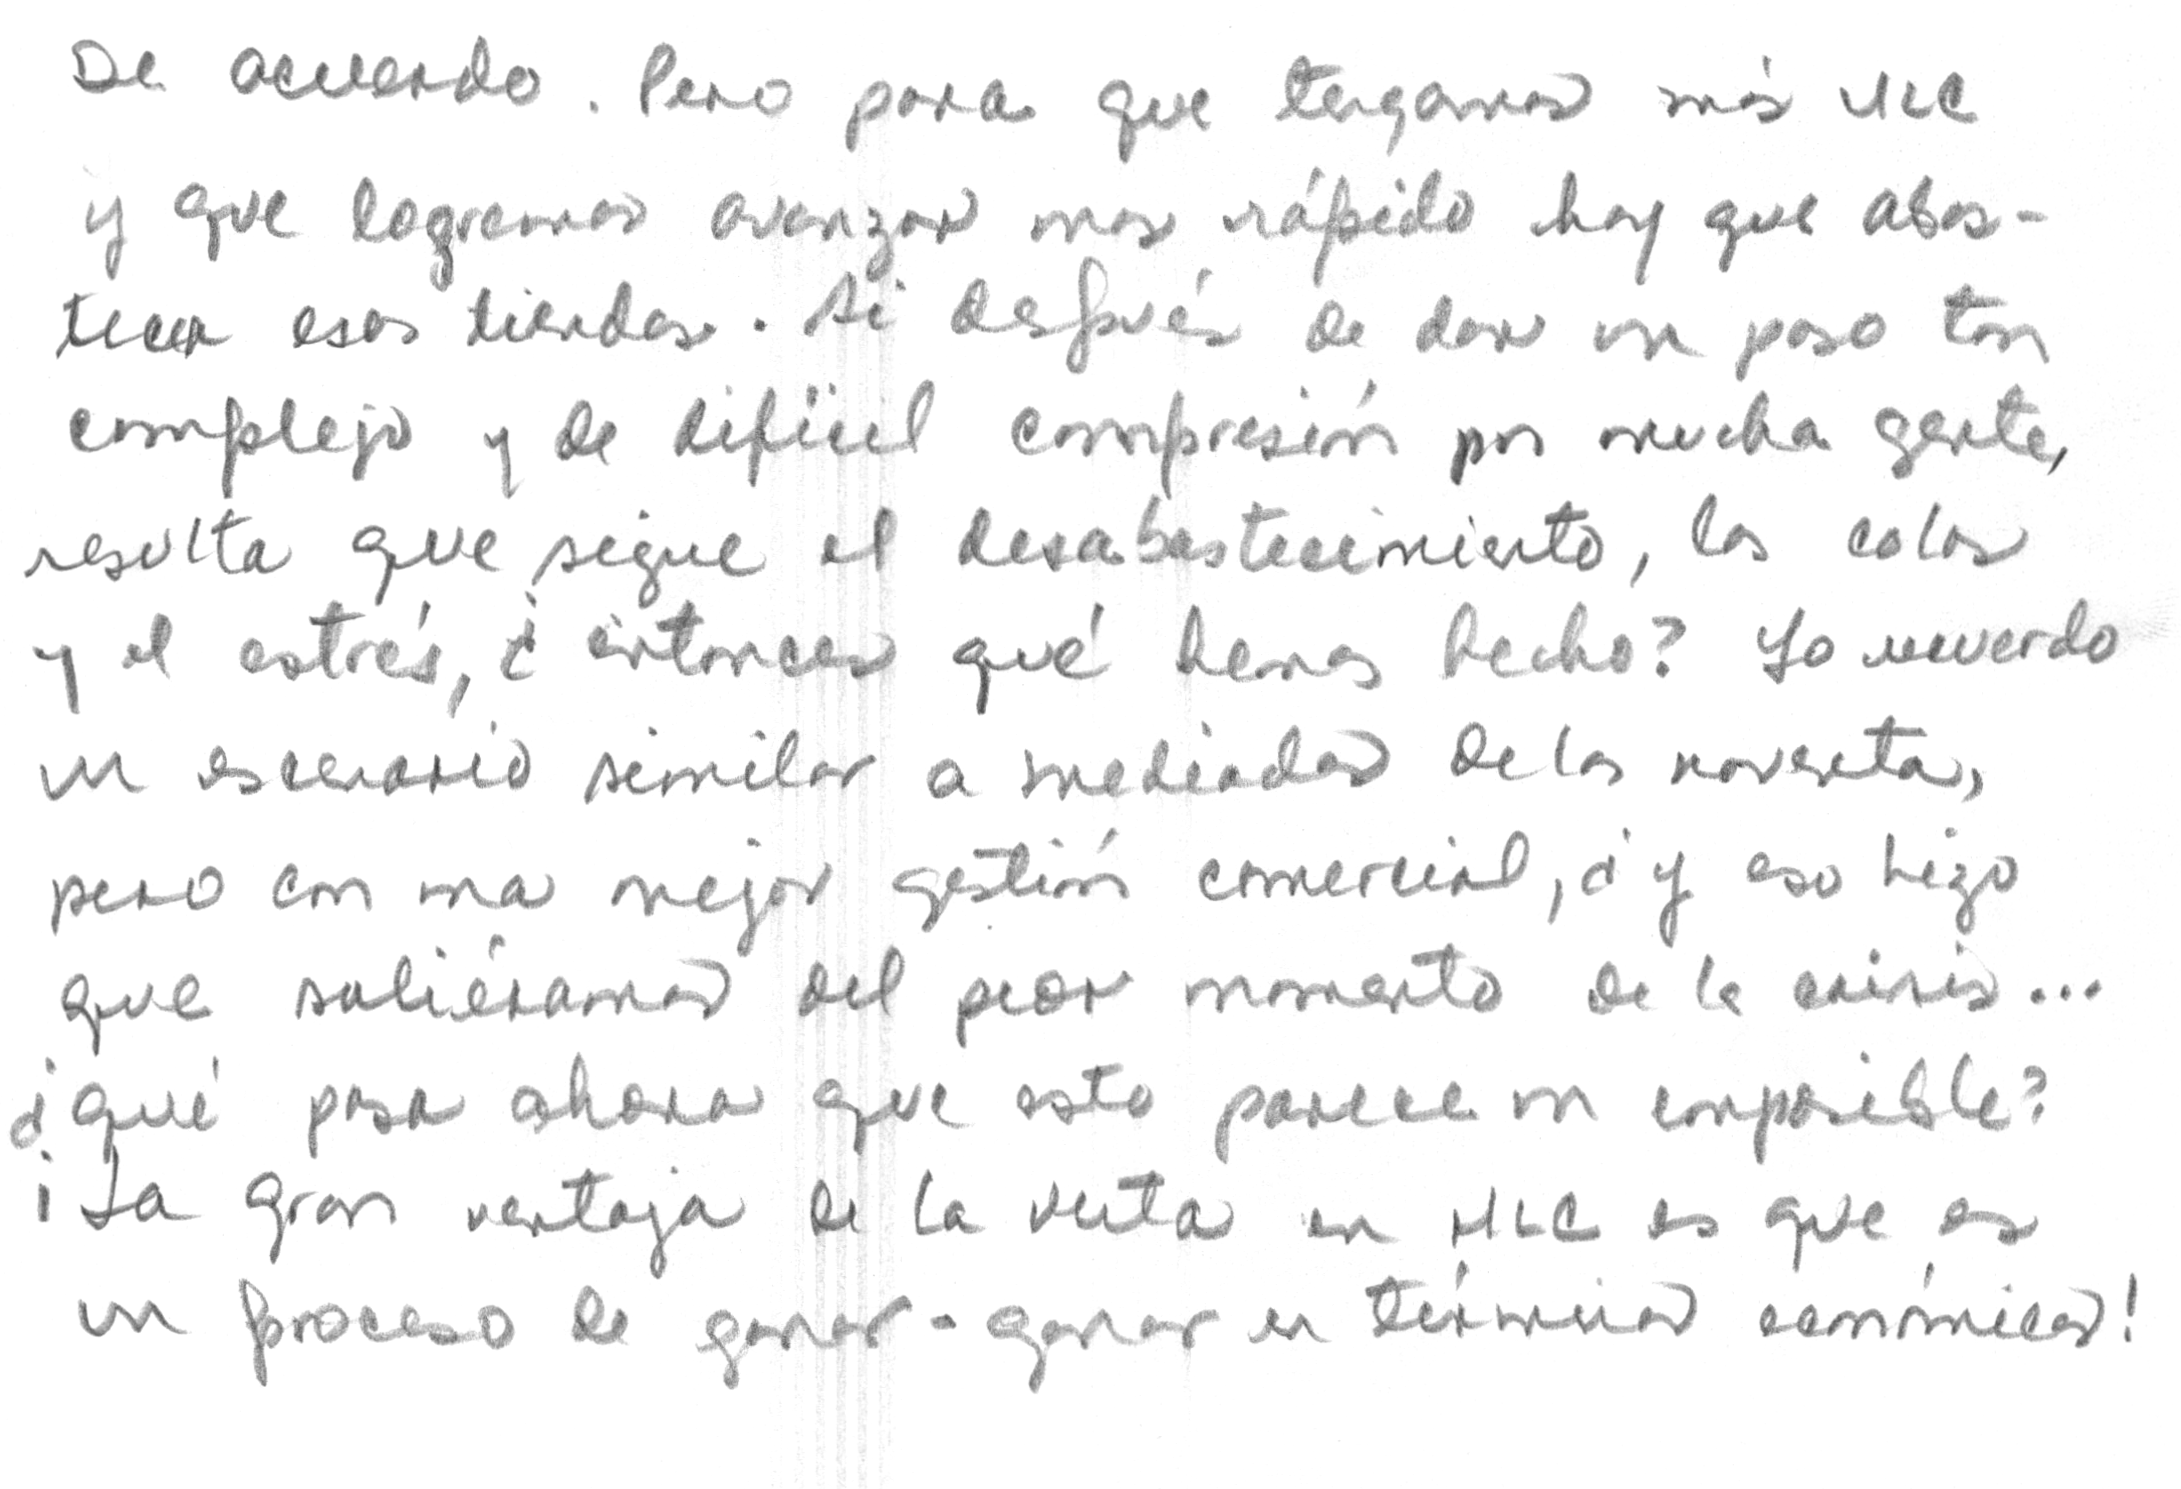 De acuerdo. Pero para que tengamos más MLC
y que logremos avanzar mas rápido hay que abas-
tecer esas tiendas. Si después de dar un paso tan
complejo y de difícil compresión por mucha gente,
resulta que sigue el desabastecimiento, las colas
y el estrés, ¿entonces qué hemos hecho? Yo recuerdo
un escenario similar a mediados de los noventa,
pero con una mejor gestión comercial, ¿y eso hizo
que saliéramos del peor momento de la crisis...
¿qué pasa ahora que esto parece un imposible?
¡La gran ventaja de la venta en MLC es que es
un proceso de ganar-ganar en términos económicos!